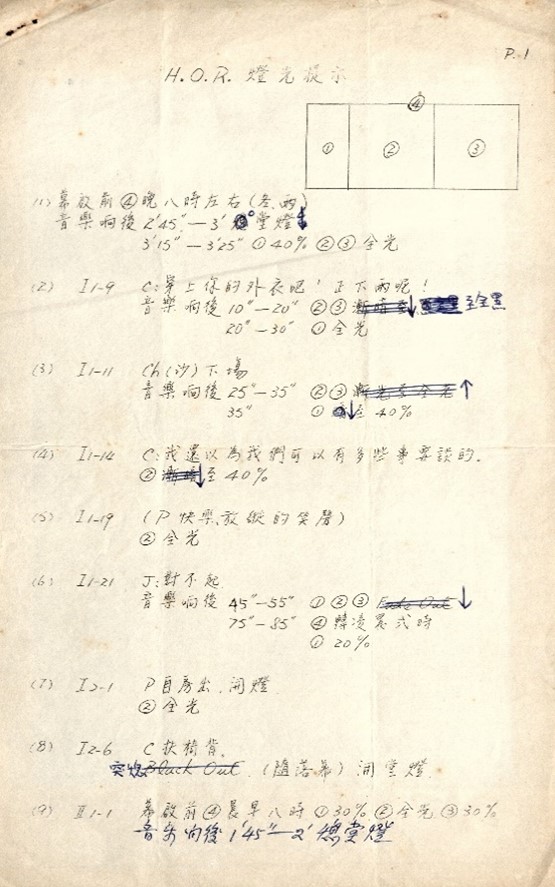 P.1
H.O.R. 燈光提示
④
① ② ③
(1) 幕啟前④晚八時左右(冬、雨)
音樂响後 2'45"—3' 堂燈↓
3'15"—3'25" ①40% ②③全光
(2) I1-9 C:穿上你的外衣吧!正下雨呢!
音樂响後 10"—20" ②③漸暗至↓至全黑
20"—30" ①全光
(3) I1-11 Ch(沙)下場
音樂响後 25"—35" ②③ ↑
35" ①↓至 40%
(4) I1-14 C:我還以為我們可以有多些事要談的.
②漸暗↓至 40%
(5) I1-19 (P快樂、放縱的笑聲)
②全光
(6) I1-21 J:對不起
音樂响後 45"—55" ①②③ Fade Out ↓
75"—85" ④韓凌晨弍時
①20%
(7) I2-1 P自房出、開燈
②全光
(8) I2-6 C扶椅背.
突熄 Black Out. (隨落幕)開堂燈.
(9) II1-1 幕啟前④晨早八時①30%②全光③30%
音樂响後 1'45"—2' 熄堂燈